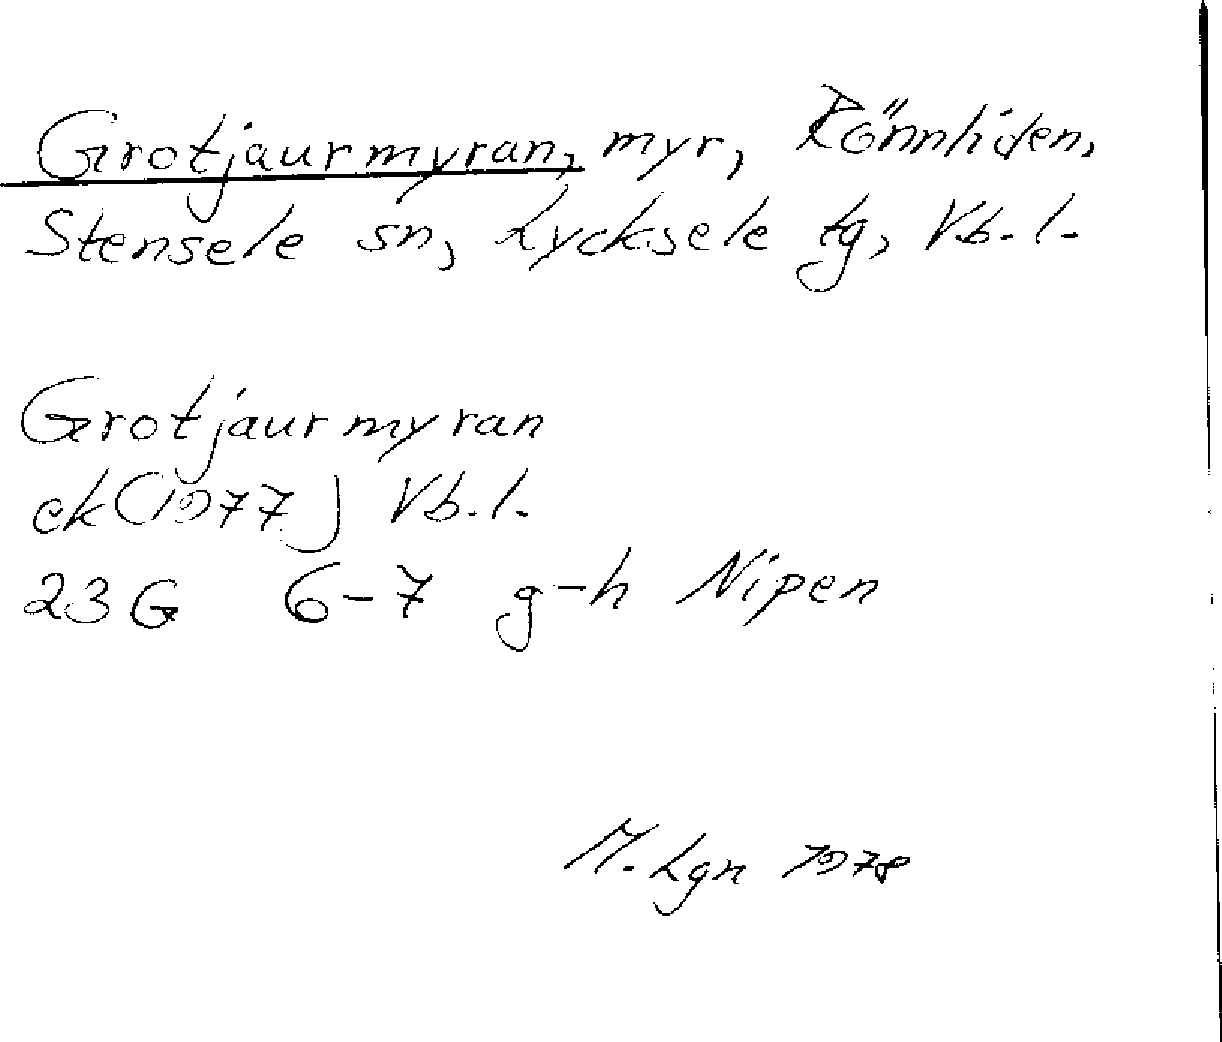 Grotjaurmyran, myr, Rönnliden,
Stensele sn, Lycksele tg, Vb. l.
Grotjaurmyran
ek (1977) Vb. l.
23G 6-7 g-h Nipen
M. Lgn 1978